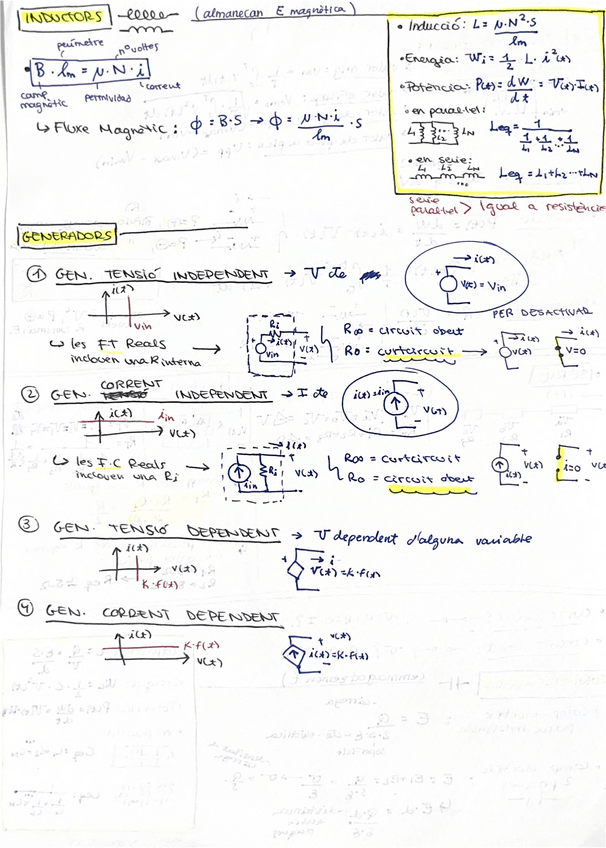 INDUCTORS (almanecan E magnètica)
perímetre nº voltes
• B · lm = μ · N · i
camp magnètic permividad corrent
↳ Fluxe Magnètic : ϕ = B·S → ϕ = μ·N·i / lm · S
• Inducció: L = μ·N²·S / lm
• Energia: Wi = 1/2 · L · i²(t)
• Potència: P(t) = dW / dt = V(t)·I(t)
• en paral·lel:
L1 L2 LN Leq = 1 / (1/L1 + 1/L2 ... + 1/LN)
• en sèrie:
L1 L2 LN ... Leq = L1+L2 ... +LN
sèrie
paral·lel > Igual a resistències
GENERADORS
① GEN. TENSIÓ INDEPENDENT → V cte
i(t) V(t) Vin
+ → i(t) V(t) = Vin -
↳ les FT Reals
inclouen una R interna → Ri Vin i(t) + V(t) -
R∞ = circuit obert
R0 = curtcircuit →
PER DESACTIVAR
+ i(t) V(t) - i(t) V=0
② GEN. CORRENT INDEPENDENT → I cte
i(t) iin V(t)
i(t)=iin + V(t) -
↳ les F.C Reals
inclouen una Ri → iin Ri i(t) + V(t) -
R∞ = curtcircuit
R0 = circuit obert
i(t) + V(t) - i=0 + V(t) -
③ GEN. TENSIÓ DEPENDENT → V dependent d'alguna variable
i(t) V(t) K·f(t)
+ → i V(t)=K·f(t) -
④ GEN. CORRENT DEPENDENT
i(t) K·f(t) V(t)
+ V(t) i(t)=K·f(t) -